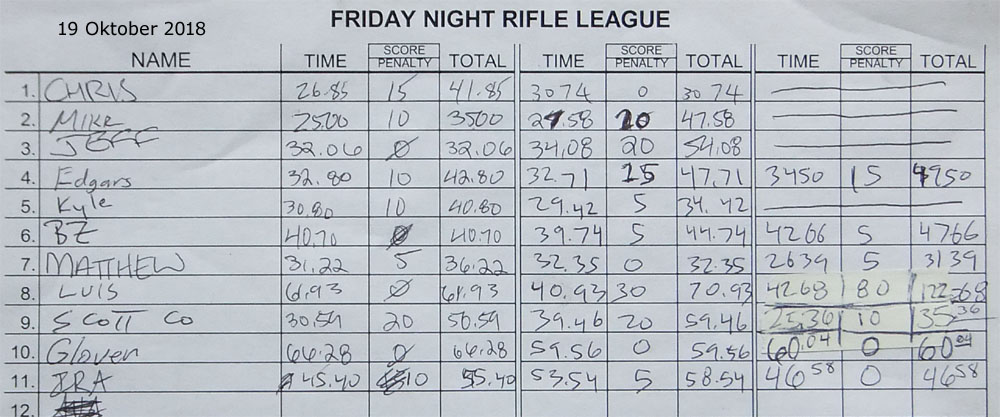 19 Oktober 2018
FRIDAY NIGHT RIFLE LEAGUE
NAME TIME SCORE PENALTY TOTAL TIME SCORE PENALTY TOTAL TIME SCORE PENALTY TOTAL
1. CHRIS 26.85 15 41.85 3074 0 3074
2. MIKE 2500 10 3500 27.58 20 47.58
3. JEFF 32.06 0 32.06 34.08 20 54.08
4. Edgars 32.80 10 42.80 32.71 15 47.71 3450 15 4950
5. Kyle 30.80 10 40.80 29.42 5 34.42
6. BZ 40.70 0 40.70 39.74 5 44.74 4266 5 4766
7. MATTHEW 31.22 5 36.22 32.35 0 32.35 2639 5 3139
8. LUIS 61.93 0 61.93 40.93 30 70.93 42.68 80 122.68
9. SCOTT CO 30.59 20 50.59 39.46 20 59.46 25.36 10 35 36
10. Gloven 66.28 0 66.28 59.56 0 59.56 60.04 0 60 04
11. IRA 45.40 10 55.40 53.54 5 58.54 46 58 0 46 58
12.